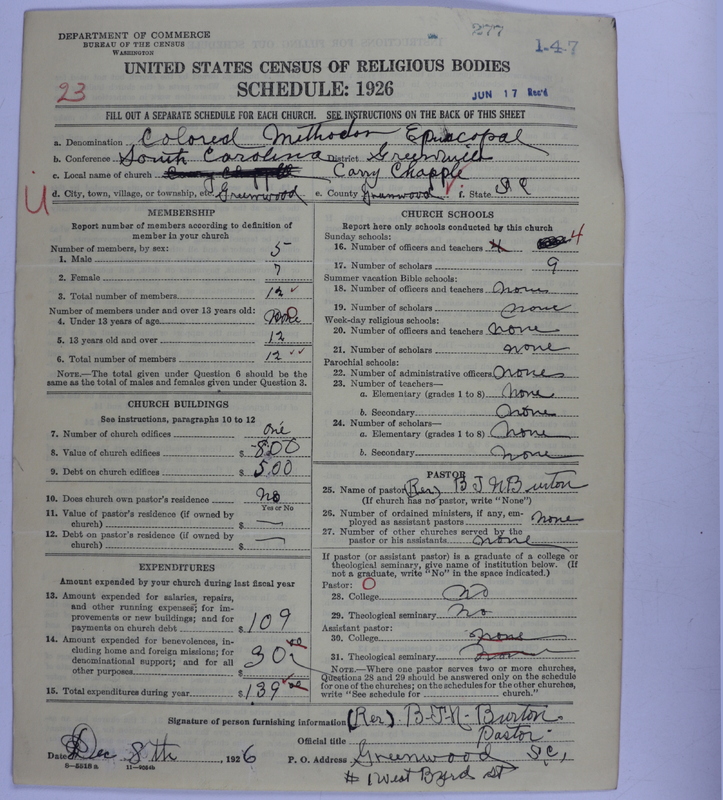 277
1-4-7
DEPARTMENT OF COMMERCE
BUREAU OF THE CENSUS
WASHINGTON
UNITED STATES CENSUS OF RELIGIOUS BODIES
SCHEDULE: 1926
23
JUN 17 Rec'd
FILL OUT A SEPARATE SCHEDULE FOR EACH CHURCH. SEE INSTRUCTIONS ON THE BACK OF THIS SHEET
a. Denomination Colored Methodon Episcopal
b. Conference South Carolina District Greenwood
c. Local name of church Carry Chapple
d. City, town, village, or township, etc. Greenwood e. County Greenwood f. State S C
U
MEMBERSHIP
Report number of members according to definition of
member in your church
Number of members, by sex:
1. Male 5
2. Female 7
3. Total number of members 12 ✓
Number of members under and over 13 years old:
4. Under 13 years of age None
5. 13 years old and over 12
6. Total number of members 12 ✓✓
NOTE.—The total given under Question 6 should be
same as the total of males and females given under Question 3.
CHURCH BUILDINGS
See instructions, paragraphs 10 to 12
7. Number of church edifices one
8. Value of church edifices $ 800
9. Debt on church edifices $ 5.00
10. Does church own pastor's residence No
Yes or No
11. Value of pastor's residence (if owned by
church) $ —
12. Debt on pastor's residence (if owned by
church) $ —
EXPENDITURES
Amount expended by your church during last fiscal year
13. Amount expended for salaries, repairs,
and other running expenses; for im-
provements or new buildings; and for
payments on church debt $ 109
14. Amount expended for benevolences, in-
cluding home and foreign missions; for
denominational support; and for all
other purposes $ 30
15. Total expenditures during year $ 139
CHURCH SCHOOLS
Report here only schools conducted by this church
Sunday schools:
16. Number of officers and teachers 4 4
17. Number of scholars 9
Summer vacation Bible schools:
18. Number of officers and teachers none
19. Number of scholars none
Week-day religious schools:
20. Number of officers and teachers none
21. Number of scholars none
Parochial schools:
22. Number of administrative officers none
23. Number of teachers—
a. Elementary (grades 1 to 8) None
b. Secondary None
24. Number of scholars—
a. Elementary (grades 1 to 8) None
b. Secondary None
PASTOR
25. Name of pastor (Rev) B J N Burton
(If church has no pastor, write "None")
26. Number of ordained ministers, if any, em-
ployed as assistant pastors none
27. Number of other churches served by the
pastor or his assistants none
If pastor (or assistant pastor) is a graduate of a college or
theological seminary, give name of institution below. (If
not a graduate, write "No" in the space indicated.)
Pastor: O
28. College No
29. Theological seminary No
Assistant pastor:
30. College none
31. Theological seminary none
NOTE.—Where one pastor serves two or more churches,
Questions 28 and 29 should be answered only on the schedule
for one of the churches; on the schedules for the other churches,
write "See schedule for church."
Signature of person furnishing information (Rev). B-J-N- Burton
Official title Pastor
Date Dec 8th, 1926
P. O. Address Greenwood S.C,
# 1 West Byrd St
8-5518 a 11-9084b